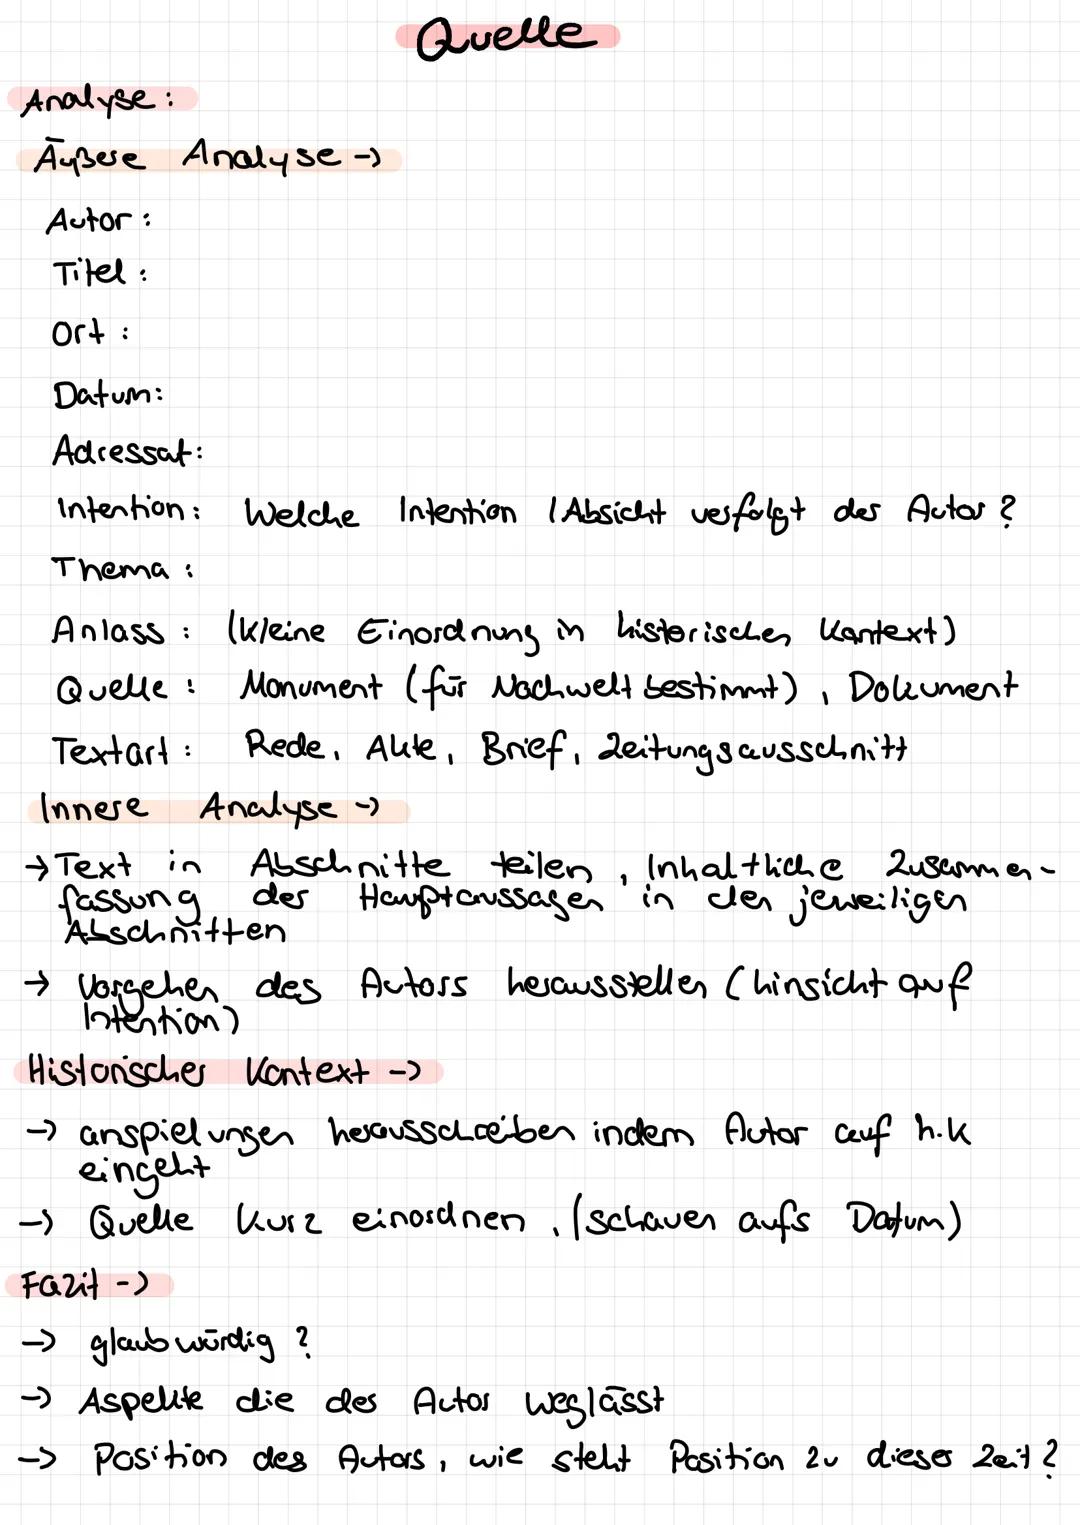 Quelle
Analyse:
Äußere Analyse ->
Autor:
Titel:
Ort:
Datum:
Adressat:
Intention: Welche Intention / Absicht verfolgt der Autor?
Thema:
Anlass: (kleine Einordnung in historischen Kontext)
Quelle: Monument (für Nachwelt bestimmt), Dokument
Textart: Rede, Akte, Brief, Zeitungsausschnitt
Innere Analyse ->
→ Text in Abschnitte teilen, Inhaltliche Zusammen-
fassung der Hauptaussagen in den jeweiligen
Abschnitten
→ Vorgehen des Autors herausstellen (hinsicht auf
Intention)
Historischer Kontext ->
-> anspielungen herausschreiben indem Autor auf h.k
eingeht
-> Quelle kurz einordnen, (schauen aufs Datum)
Fazit ->
-> glaubwürdig?
-> Aspekte die der Autor weglässt
-> Position des Autors, wie steht Position zu dieser Zeit?